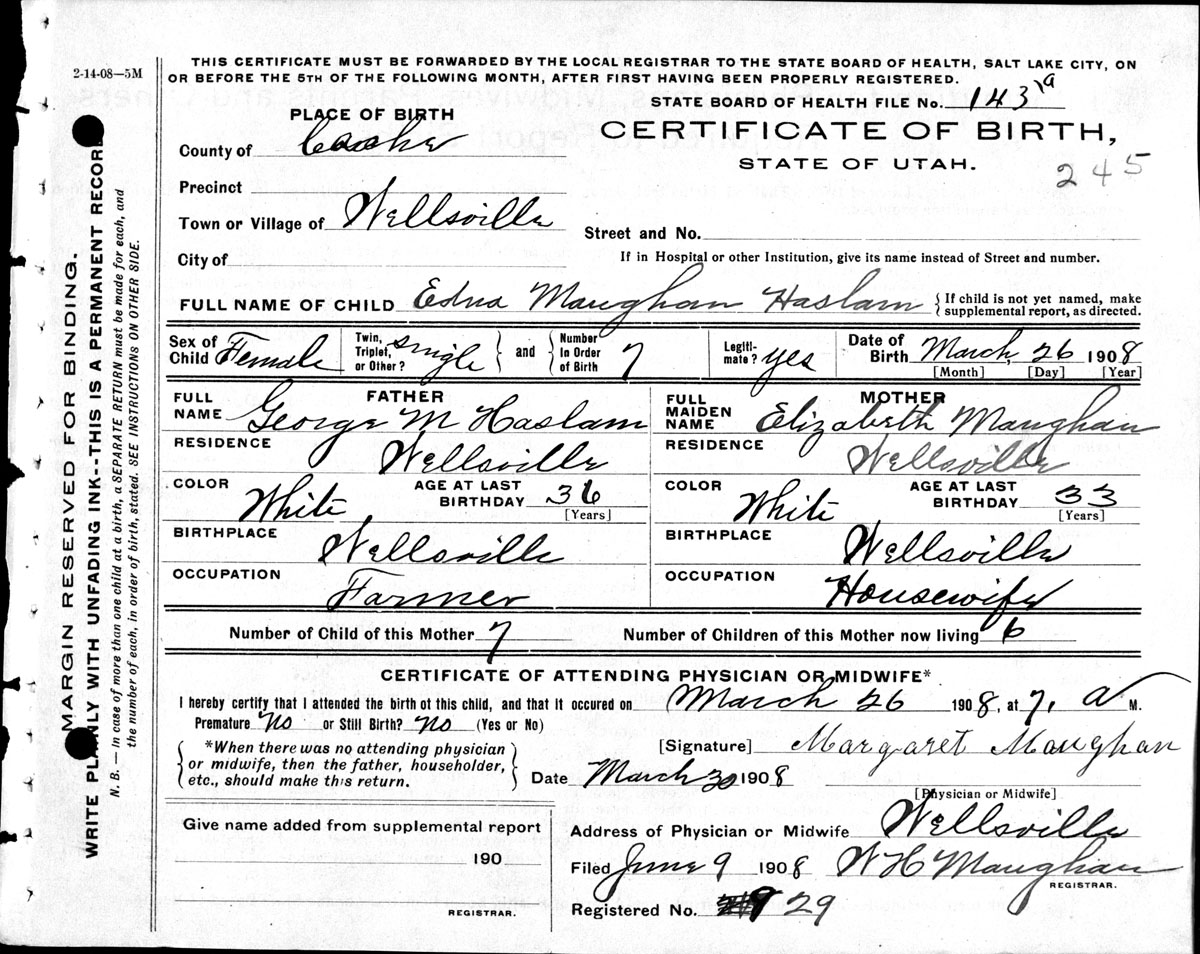 2-14-08—5M
THIS CERTIFICATE MUST BE FORWARDED BY THE LOCAL REGISTRAR TO THE STATE BOARD OF HEALTH, SALT LAKE CITY, ON
OR BEFORE THE 5TH OF THE FOLLOWING MONTH, AFTER FIRST HAVING BEEN PROPERLY REGISTERED.
STATE BOARD OF HEALTH FILE No. 143 19
PLACE OF BIRTH
CERTIFICATE OF BIRTH,
County of Cache
STATE OF UTAH.
245
Precinct
Town or Village of Wellsville
Street and No.
City of
If in Hospital or other Institution, give its name instead of Street and number.
FULL NAME OF CHILD Edna Maughan Haslam { If child is not yet named, make supplemental report, as directed.
Sex of Child Female Twin, Triplet, or Other? single } and { Number In Order of Birth 7 Legiti-mate? yes Date of Birth March, 26 1908
[Month] [Day] [Year]
FATHER
FULL NAME George M Haslam
RESIDENCE Wellsville
COLOR White AGE AT LAST BIRTHDAY 36
[Years]
BIRTHPLACE Wellsville
OCCUPATION Farmer
MOTHER
FULL MAIDEN NAME Elizabeth Maughan
RESIDENCE Wellsville
COLOR White AGE AT LAST BIRTHDAY 33
[Years]
BIRTHPLACE Wellsville
OCCUPATION Housewife
Number of Child of this Mother 7 Number of Children of this Mother now living 6
CERTIFICATE OF ATTENDING PHYSICIAN OR MIDWIFE*
I hereby certify that I attended the birth of this child, and that it occured on March 26 1908, at 7, a M.
Premature No or Still Birth? No (Yes or No)
{ *When there was no attending physician
or midwife, then the father, householder,
etc., should make this return. }
[Signature] Margaret Maughan
Date March 30 1908
[Physician or Midwife]
Give name added from supplemental report
190
REGISTRAR.
Address of Physician or Midwife Wellsville
Filed June 9 1908 W H Maughan
REGISTRAR.
Registered No. 29
MARGIN RESERVED FOR BINDING.
WRITE PLAINLY WITH UNFADING INK--THIS IS A PERMANENT RECORD
N. B. — In case of more than one child at a birth, a SEPARATE RETURN must be made for each, and
the number of each, in order of birth, stated. SEE INSTRUCTIONS ON OTHER SIDE.